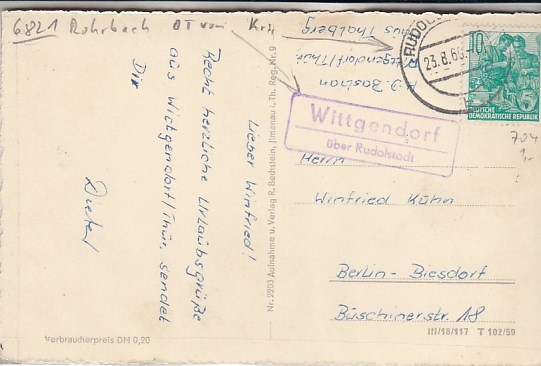 6821 Rohrbach OT von
Lieber Winfried!
Recht herzliche Urlaubsgrüße
aus Wittgendorf/Thür. sendet
Dir
Dieter
Nr. 2203 Aufnahme u. Verlag R. Bechstein, Jlmenau i. Th. Reg. Nr. 9
Verbraucherpreis DM 0,20
H.J. Bastian
Haus Thalberg
Wittgendorf
über Rudolstadt
23.8.63
10
5
DEUTSCHE
DEMOKRATISCHE REPUBLIK
704
1,-
Herrn
Winfried Kühn
Berlin-Biesdorf
Büschinerstr. 18
III/18/117 T 102/59